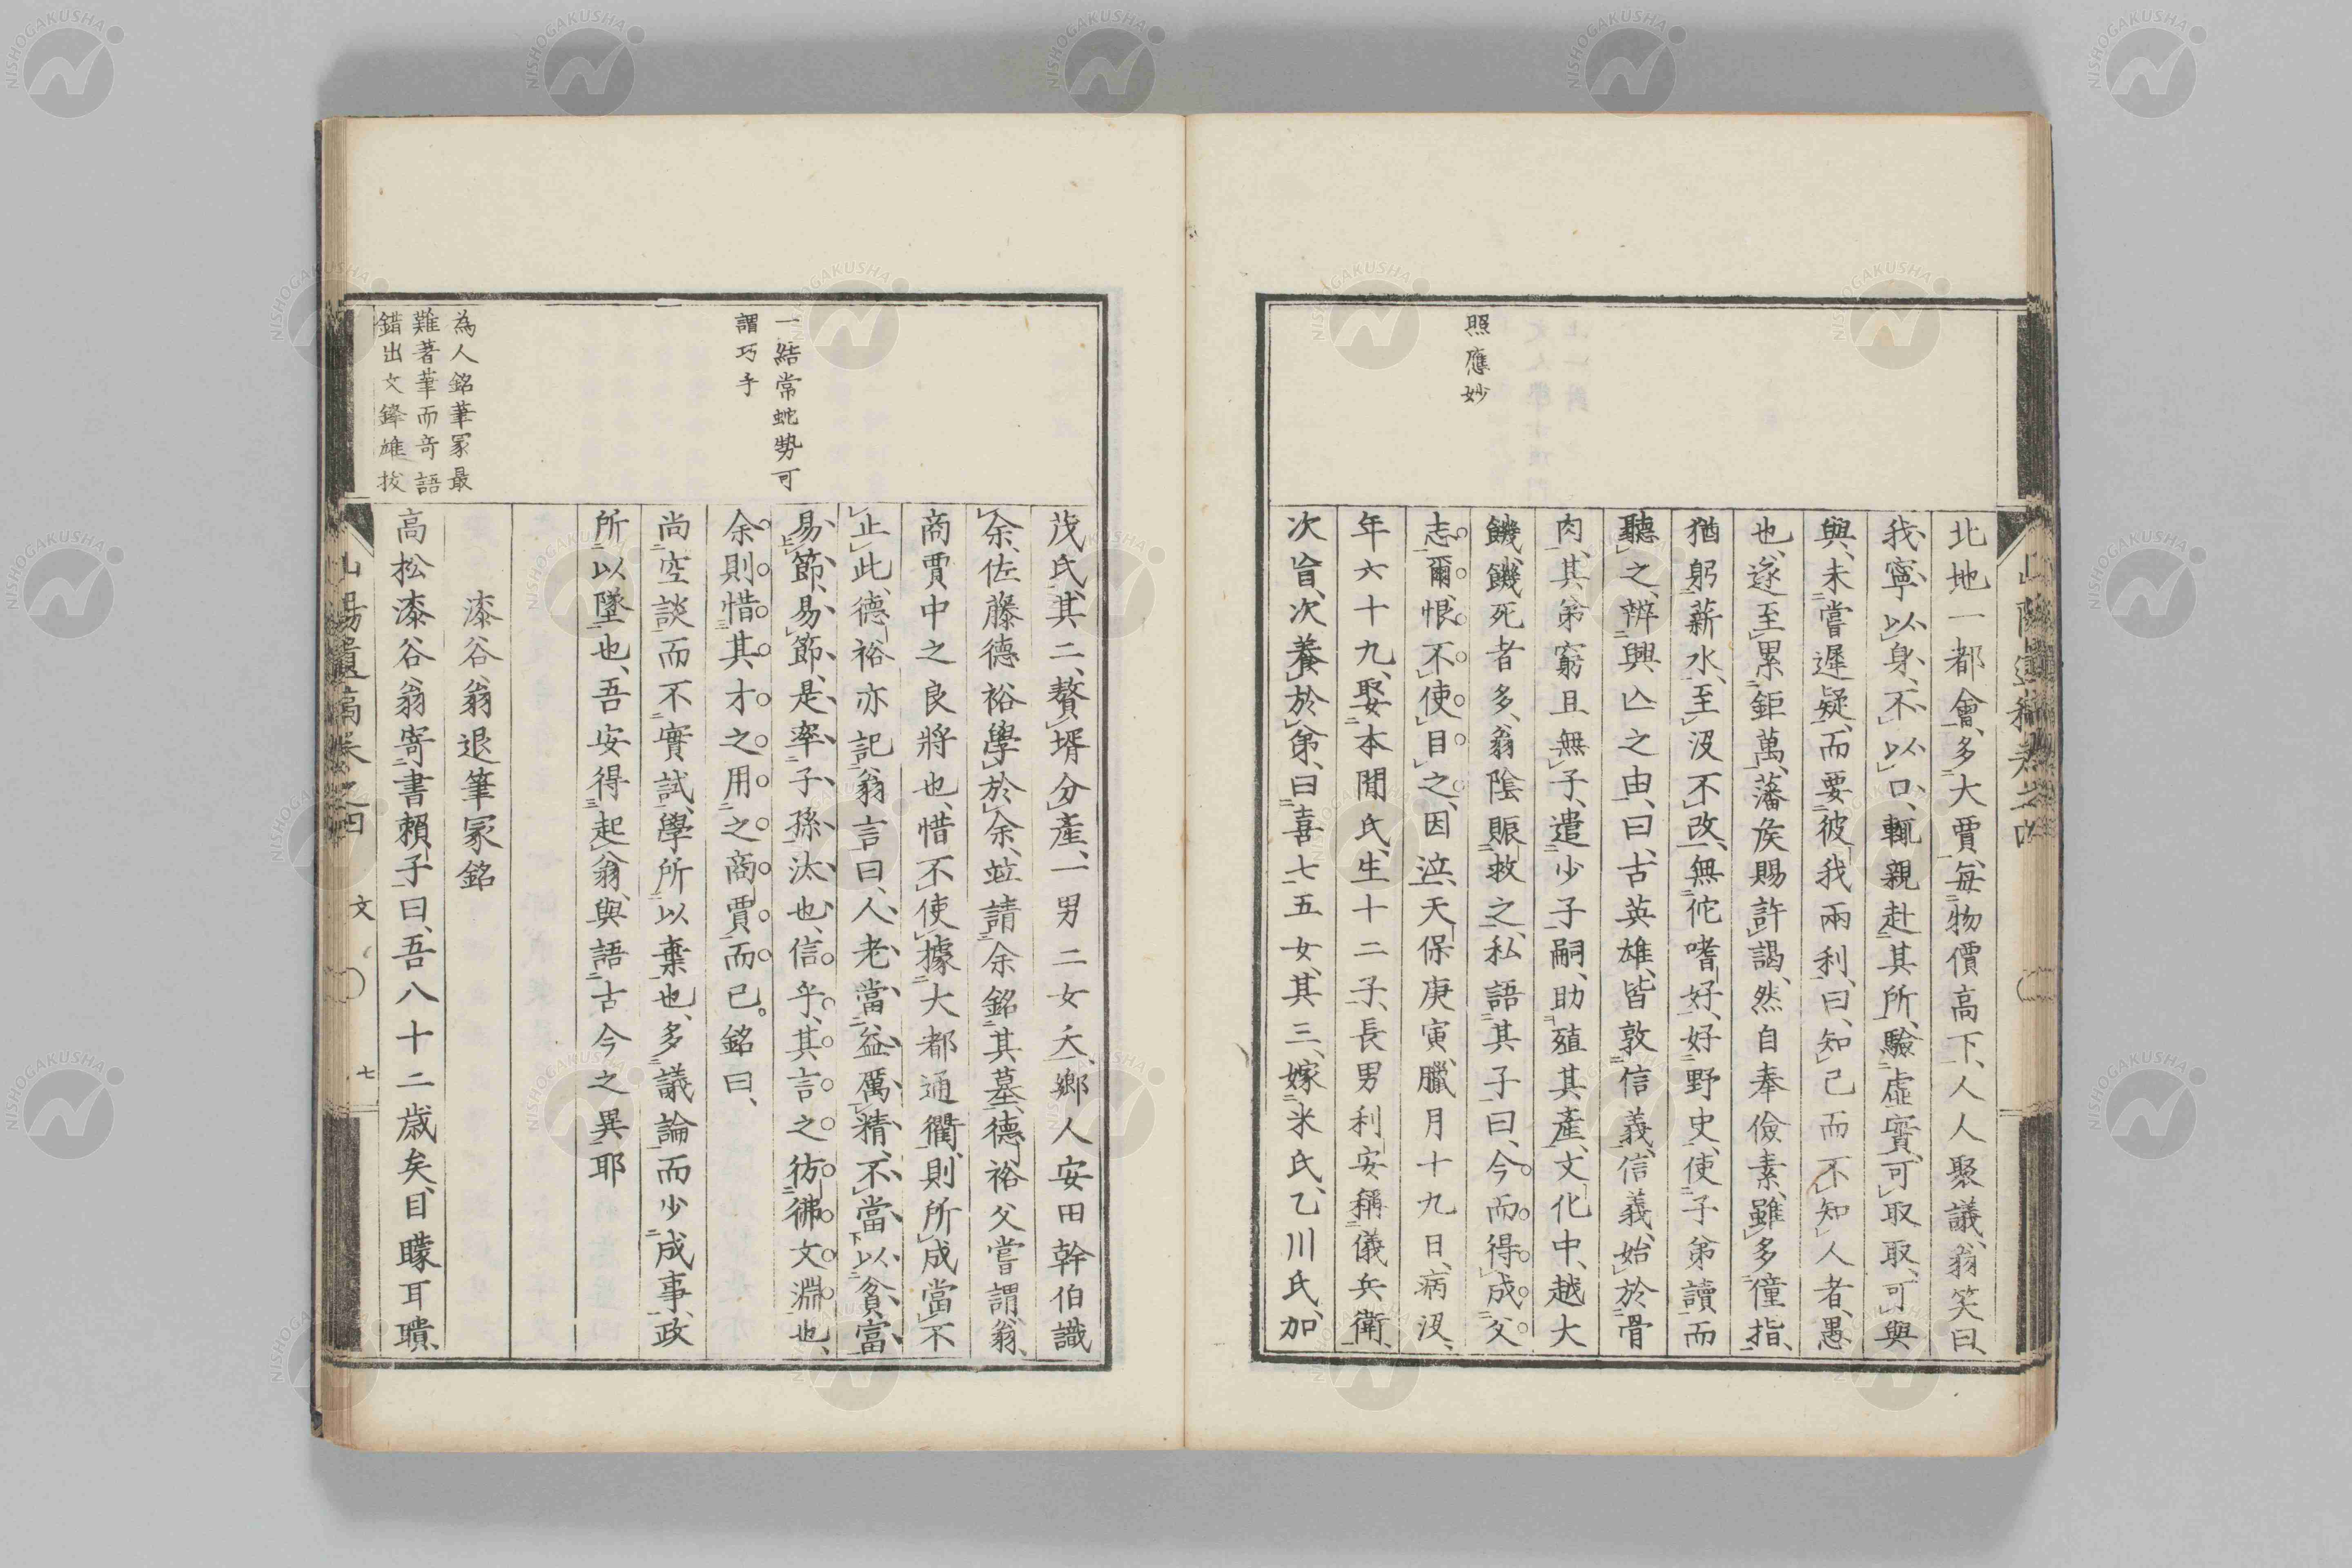 照應妙
北地一都會、多大賈、每物價高下、人人聚議、翁笑曰、
我、寧以身、不以口、輒親赴其所、驗虛實、可取取、可與
與、未嘗遲疑、而要彼我兩利、曰、知己而不知人者、愚
也、遂至累鉅萬、藩侯賜許謁、然自奉儉素、雖多僮指、
猶躬薪水、至沒不改、無佗嗜好、好野史、使子弟讀而
聽之、辨興亾之由、曰、古英雄、皆敦信義、信義、始於骨
肉、其弟窮且無子、遣少子嗣、助殖其產、文化中、越大
饑、饑死者多、翁陰賑救之、私語其子曰、今而得成父
志爾、恨不使目之、因泣、天保庚寅、臘月十九日、病沒、
年六十九、娶本間氏、生十二子、長男利安稱儀兵衛、
次旨、次養於弟、曰喜七、五女、其三、嫁米氏、乙川氏、加
一結常蛇勢可
謂巧手
為人銘筆冢最
難著筆而奇語
錯出文鋒雄拔
茂氏、其二、贅壻分產、一男二女夭、鄉人安田幹伯識
余、佐藤德裕學於余、竝請余銘其墓、德裕父嘗謂、翁、
商賈中之良將也、惜不使據大都通衢、則所成當不
止此、德裕亦記翁言曰、人老、當益厲精、不當以貧富
易節、易節、是率子孫汰也、信乎、其言之彷彿文淵也、
余則惜其才之用之商賈而已。銘曰、
尚空談而不實試、學所以棄也、多議論而少成事、政
所以墜也、吾安得起翁、與語古今之異耶
漆谷翁退筆冢銘
高松漆谷翁寄書賴子曰、吾八十二歲矣、目矇耳聵、
山陽遺稿卷之四
文
七